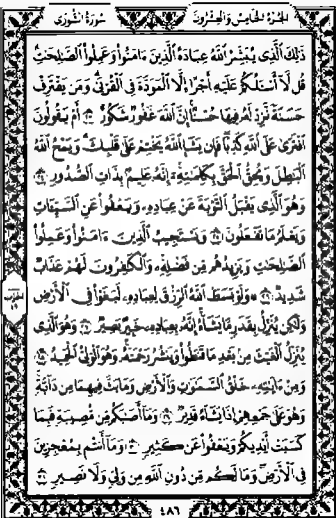 الجزء الخامس والعشرون سورة الشورى
ذَٰلِكَ ٱلَّذِى يُبَشِّرُ ٱللَّهُ عِبَادَهُ ٱلَّذِينَ ءَامَنُوا۟ وَعَمِلُوا۟ ٱلصَّـٰلِحَـٰتِ
قُل لَّآ أَسْـَٔلُكُمْ عَلَيْهِ أَجْرًا إِلَّا ٱلْمَوَدَّةَ فِى ٱلْقُرْبَىٰ وَمَن يَقْتَرِفْ
حَسَنَةً نَّزِدْ لَهُۥ فِيهَا حُسْنًا إِنَّ ٱللَّهَ غَفُورٌ شَكُورٌ ٢٣ أَمْ يَقُولُونَ
ٱفْتَرَىٰ عَلَى ٱللَّهِ كَذِبًا فَإِن يَشَإِ ٱللَّهُ يَخْتِمْ عَلَىٰ قَلْبِكَ وَيَمْحُ ٱللَّهُ
ٱلْبَـٰطِلَ وَيُحِقُّ ٱلْحَقَّ بِكَلِمَـٰتِهِۦٓ إِنَّهُۥ عَلِيمٌۢ بِذَاتِ ٱلصُّدُورِ ٢٤
وَهُوَ ٱلَّذِى يَقْبَلُ ٱلتَّوْبَةَ عَنْ عِبَادِهِۦ وَيَعْفُوا۟ عَنِ ٱلسَّيِّـَٔاتِ
وَيَعْلَمُ مَا تَفْعَلُونَ ٢٥ وَيَسْتَجِيبُ ٱلَّذِينَ ءَامَنُوا۟ وَعَمِلُوا۟
ٱلصَّـٰلِحَـٰتِ وَيَزِيدُهُم مِّن فَضْلِهِۦ وَٱلْكَـٰفِرُونَ لَهُمْ عَذَابٌ
شَدِيدٌ ٢٦ وَلَوْ بَسَطَ ٱللَّهُ ٱلرِّزْقَ لِعِبَادِهِۦ لَبَغَوْا۟ فِى ٱلْأَرْضِ
وَلَـٰكِن يُنَزِّلُ بِقَدَرٍ مَّا يَشَآءُ إِنَّهُۥ بِعِبَادِهِۦ خَبِيرٌۢ بَصِيرٌ ٢٧ وَهُوَ ٱلَّذِى
يُنَزِّلُ ٱلْغَيْثَ مِنۢ بَعْدِ مَا قَنَطُوا۟ وَيَنشُرُ رَحْمَتَهُۥ وَهُوَ ٱلْوَلِىُّ ٱلْحَمِيدُ ٢٨
وَمِنْ ءَايَـٰتِهِۦ خَلْقُ ٱلسَّمَـٰوَٰتِ وَٱلْأَرْضِ وَمَا بَثَّ فِيهِمَا مِن دَآبَّةٍ
وَهُوَ عَلَىٰ جَمْعِهِمْ إِذَا يَشَآءُ قَدِيرٌ ٢٩ وَمَآ أَصَـٰبَكُم مِّن مُّصِيبَةٍ فَبِمَا
كَسَبَتْ أَيْدِيكُمْ وَيَعْفُوا۟ عَن كَثِيرٍ ٣٠ وَمَآ أَنتُم بِمُعْجِزِينَ
فِى ٱلْأَرْضِ وَمَا لَكُم مِّن دُونِ ٱللَّهِ مِن وَلِىٍّ وَلَا نَصِيرٍ ٣١
٤٨٦